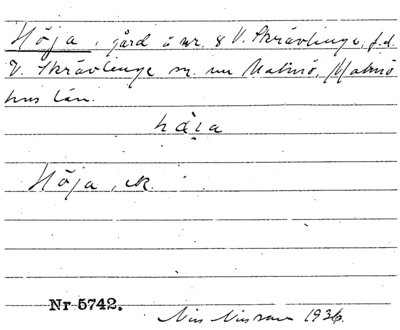 Höja, gård å nr. 8 V. Skrävlinge, f.d.
V. Skrävlinge sn. nu Malmö, Malmö
hus län.
Höja, ek.
Nr 5742.
Nils Nilsson 1936.